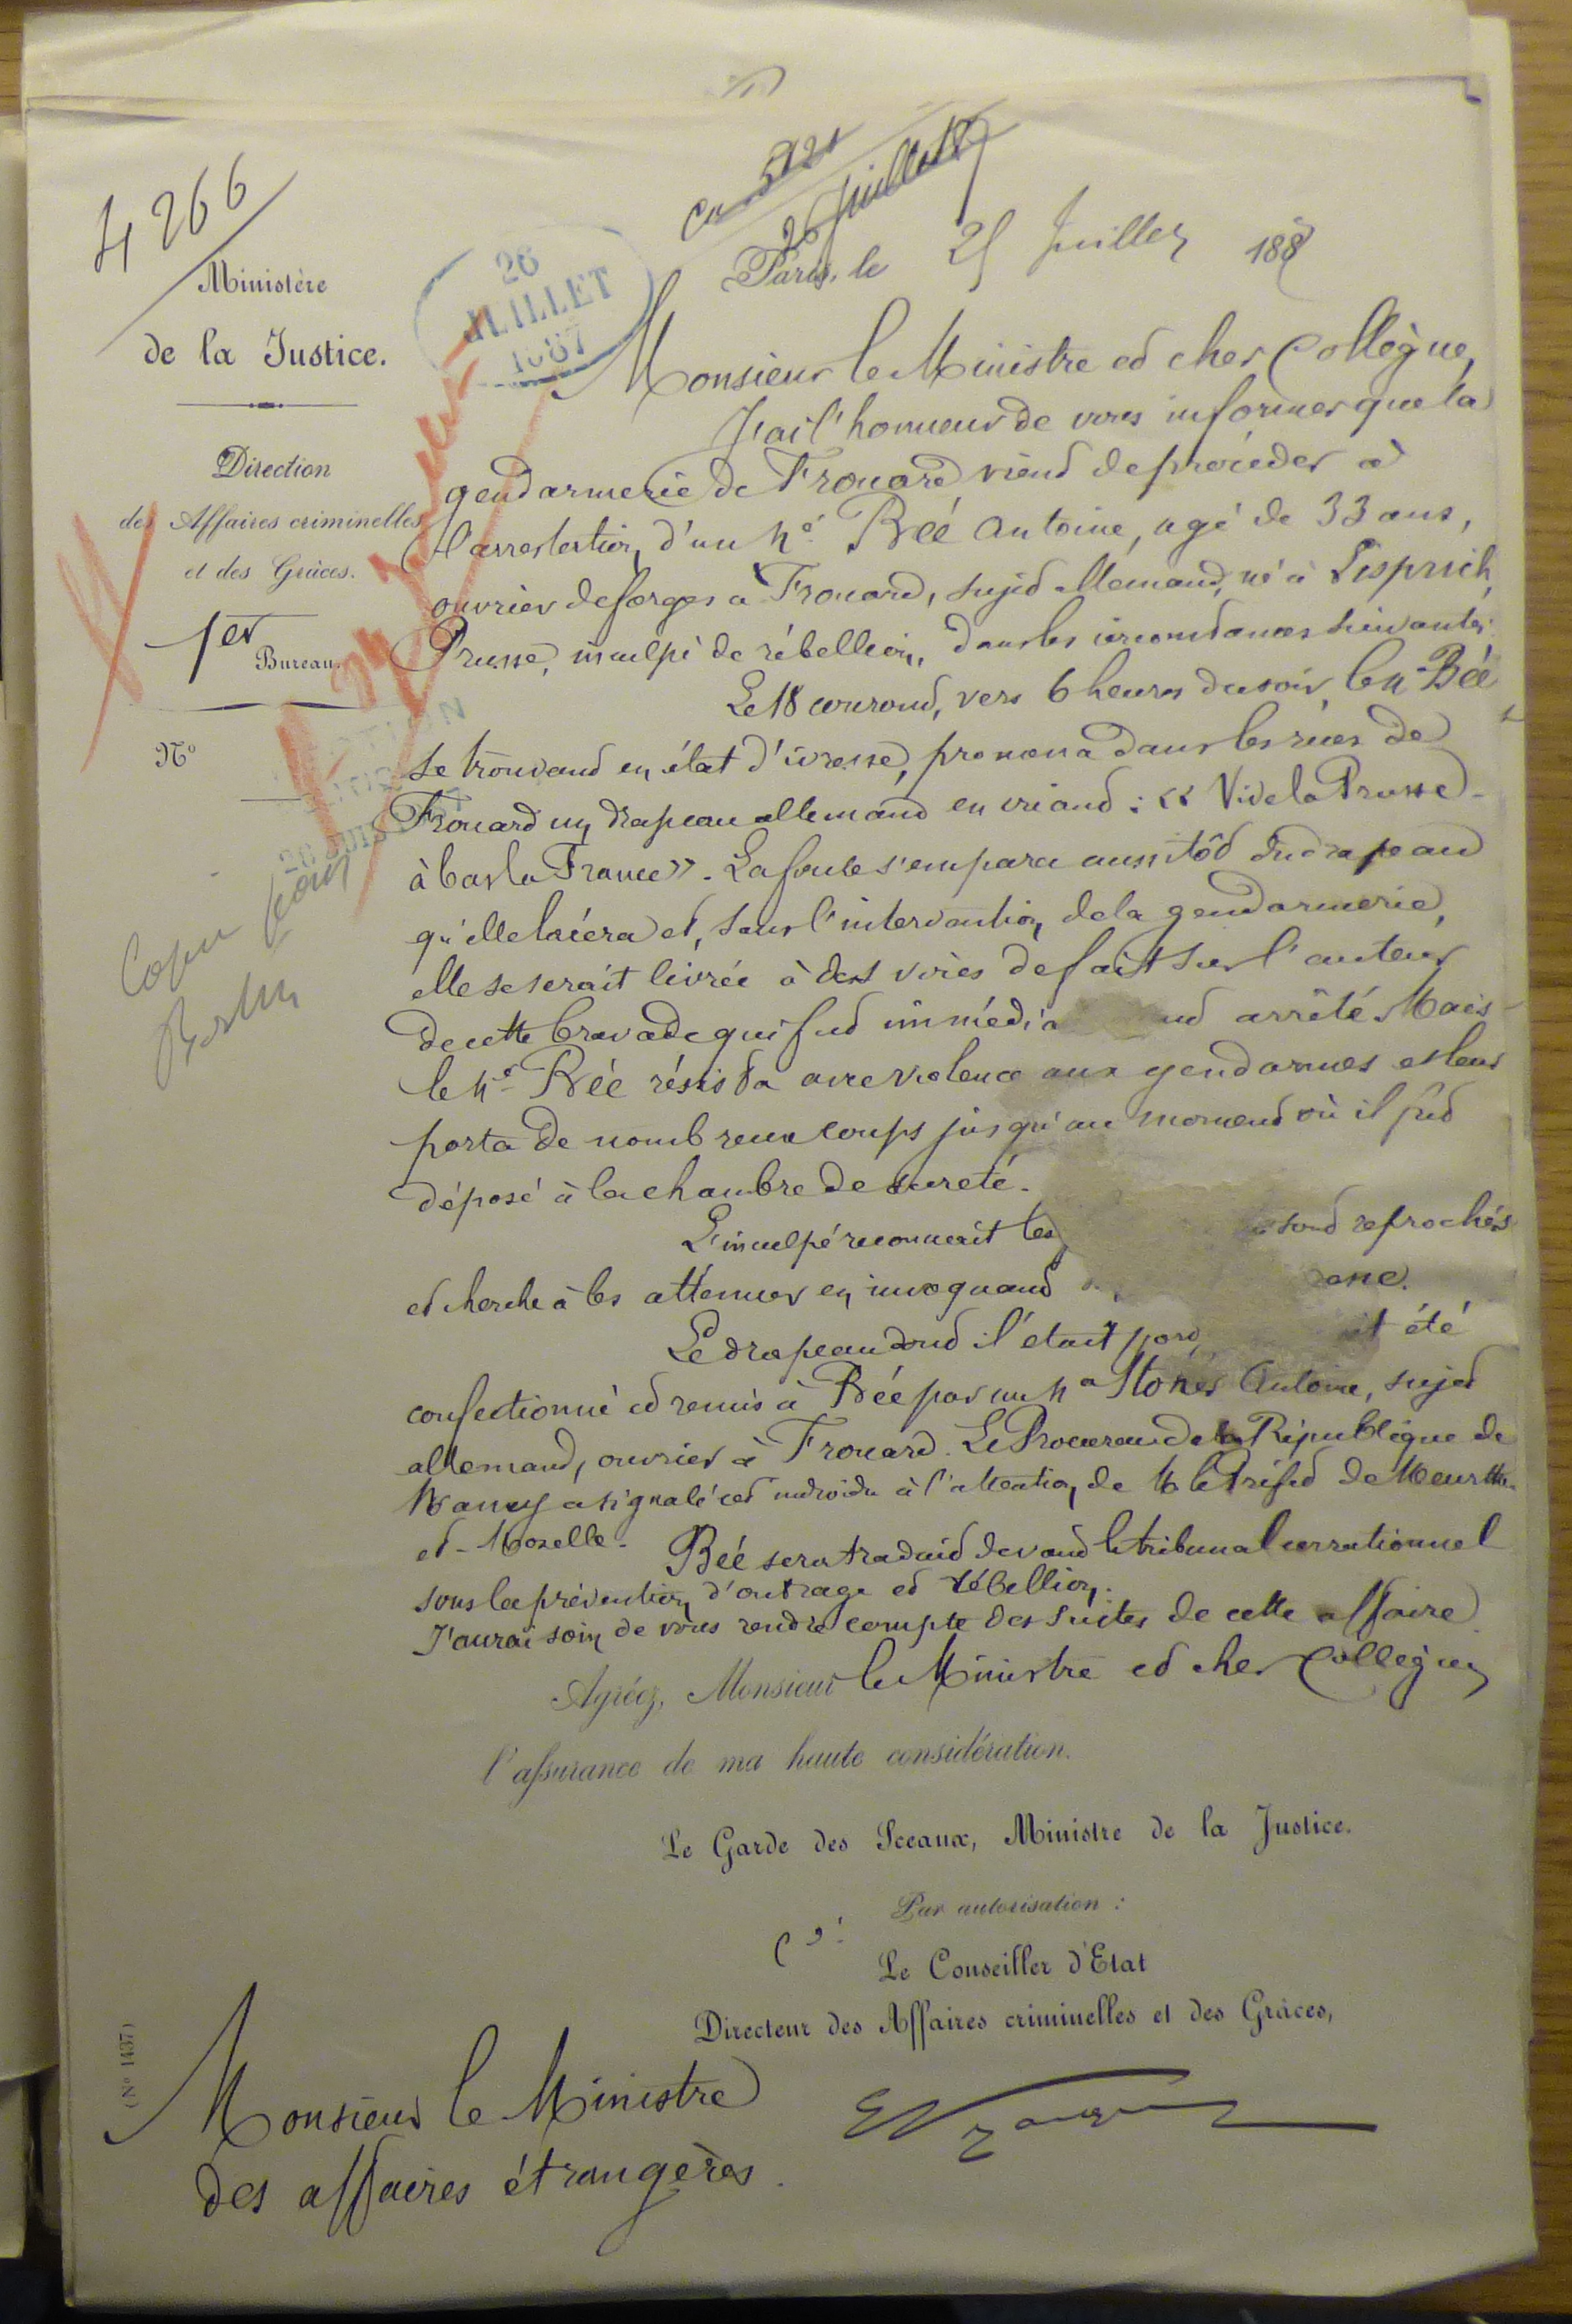 4266
26 Juillet 87
Paris, le 25 Juillet 1887
Ministère
de la Justice.
26
JUILLET
1887
Direction
des Affaires criminelles
et des Grâces.
1er Bureau.
N°
Copie pour
Berlin
Monsieur le Ministre et cher Collègue,
J'ai l'honneur de vous informer que la
gendarmerie de Frouard vient de procéder à
l'arrestation d'un né Bée Antoine, agé de 33 ans,
ouvrier de forges à Frouard, sujet allemand, né à
Prusse, inculpé de rébellion, dans les circonstances suivantes:
Le 18 courant, vers 6 heures du soir, le né Bée
se trouvant en état d'ivresse, promena dans les rues de
Frouard un drapeau allemand en criant : « Vive la Prusse -
à bas la France ». La foule s'empara aussitôt du drapeau
qu'elle lacéra et, sans l'intervention de la gendarmerie,
elle se serait livrée à des voies de fait sur l'auteur
de cette bravade qui fut immédia nt arrêté. Mais
le né Bée résista avec violence aux gendarmes et leur
porta de nombreux coups jusqu'au moment où il fut
déposé à la chambre de sureté.
L'inculpé reconnait les sont reprochés
et cherche à les atténuer en invoquant
Le drapeau dont il était por it été
confectionné et remis à Bée par un né Antoine, sujet
allemand, ouvrier à Frouard. Le Procureur de la République de
Nancy a signalé cet individu à l'attention de M le Préfet de Meurthe
et-Moselle. Bée sera traduit devant le tribunal correctionnel
sous la prévention d'outrage et rébellion.
J'aurai soin de vous rendre compte des suites de cette affaire.
Agréez, Monsieur le Ministre et cher Collègue,
l'assurance de ma haute considération.
Le Garde des Sceaux, Ministre de la Justice.
Par autorisation :
Le Conseiller d'Etat
Directeur des Affaires criminelles et des Grâces,
(N° 1437)
Monsieur le Ministre
des affaires étrangères.